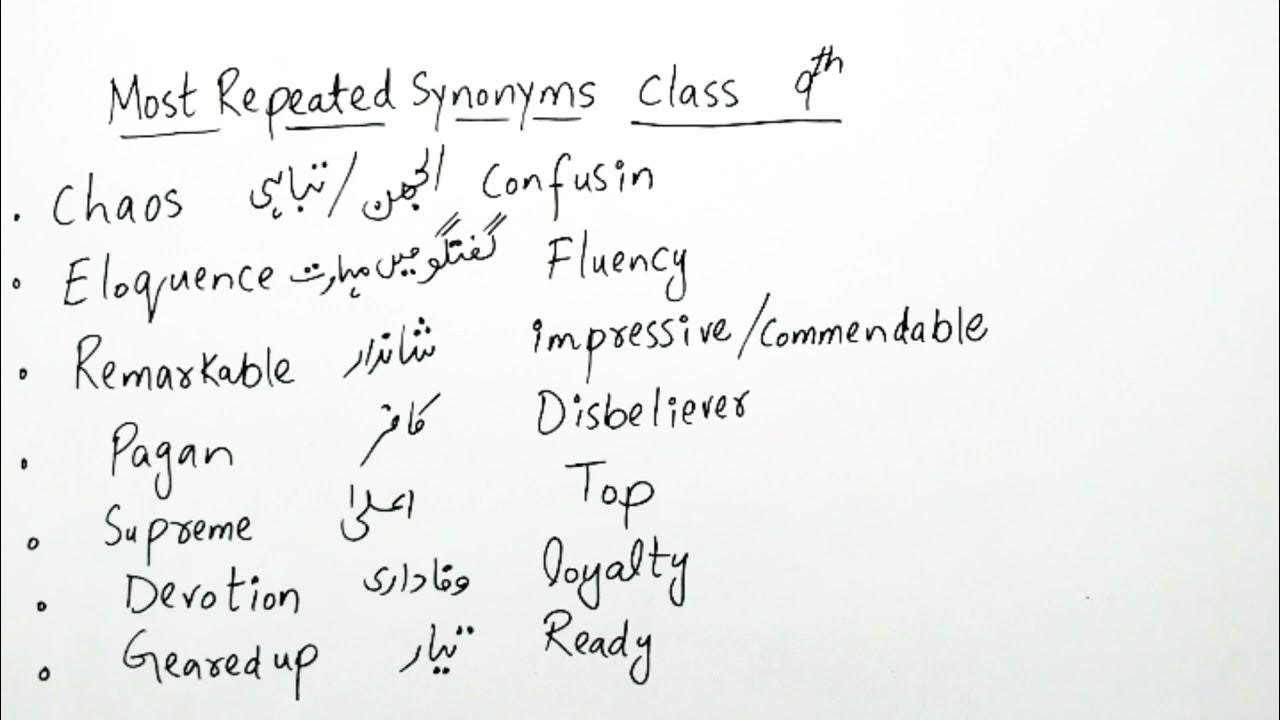 Most Repeated Synonyms Class 9th
• Chaos تباہی / الجھن Confusin
• Eloquence گفتگو میں مہارت Fluency
• Remarkable شاندار impressive/Commendable
• Pagan کافر Disbeliever
• Supreme اعلیٰ Top
• Devotion وفاداری loyalty
• Geared up تیار Ready